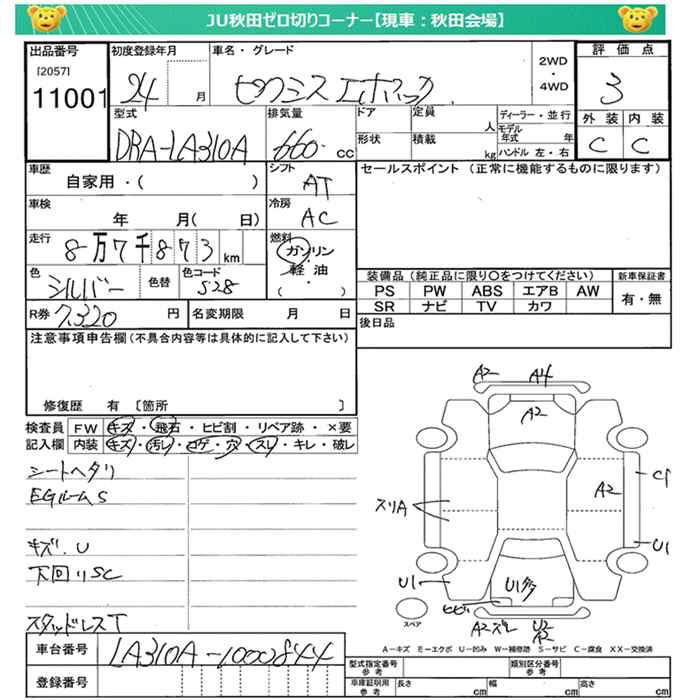 JU秋田ゼロ切りコーナー【現車：秋田会場】
出品番号
[2057]
11001
初度登録年月
24 月
車名・グレード
2WD
・
4WD
評価点
3
型式
DBA-LA310A
排気量
660 cc
ドア
定員
人
ディーラー・並行
モデル年式 年
形状
積載
kg
ハンドル 左・右
外装
内装
C
C
車歴
自家用・( )
シフト
AT
セールスポイント (正常に機能するものに限ります)
車検
年 月( 日)
冷房
AC
走行
8万7千873 km
燃料
ガソリン
・
軽油
( )
色
シルバー
色替
色コード
S28
装備品(純正品に限り○をつけてください)
新車保証書
PS PW ABS エアB AW
SR ナビ TV カワ
有・無
R券 7,320 円
名変期限 月 日
後日品
注意事項申告欄(不具合内容等は具体的に記入して下さい)
修復歴 有 〔箇所 〕
検査員
記入欄
FW キズ・飛石・ヒビ割・リペア跡・×要
内装 キズ・汚レ・コゲ・穴・スレ・キレ・破レ
シートヘタリ
EGルームS
キズ.U
下回りSC
スタッドレスT
A2
A4
A2
スリA
A2
U1
U1
ヒビ
スペア
A2ズレ
U2
A2
A-キズ E-エクボ U-凹み W-補修跡 S-サビ C-腐食 XX-交換済
車台番号
LA310A-1000844
登録番号
型式指定番号
参考
類別区分番号
参考
車庫証明用
参考
長さ cm
幅 cm
高さ cm